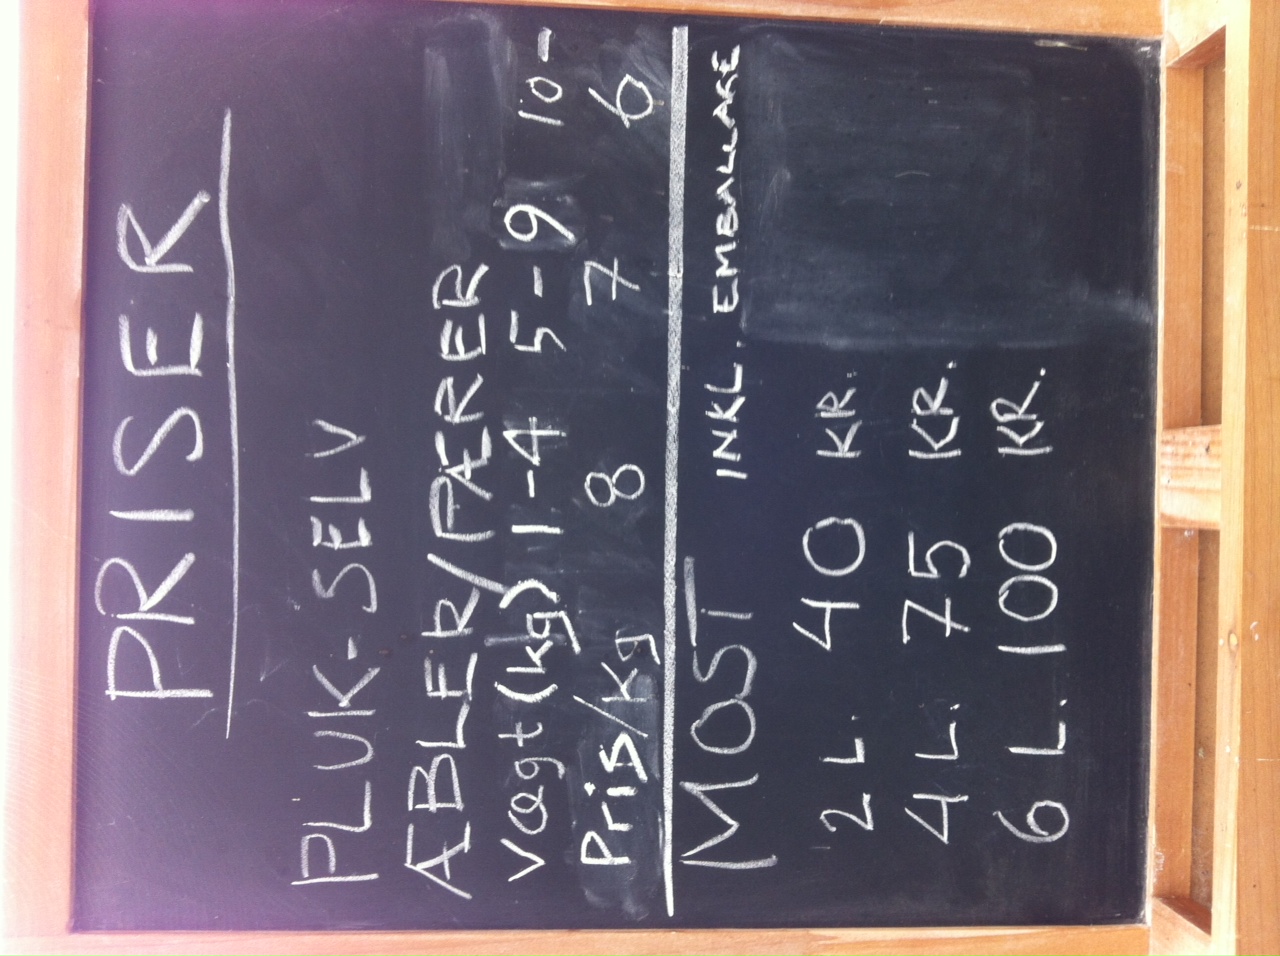 PRISER
PLUK-SELV
ÆBLER/PÆRER
Vægt (kg) 1-4 5-9 10-
Pris/kg 8 7 6
MOST INKL. EMBALLAGE
2 L. 40 KR.
4 L. 75 KR.
6 L. 100 KR.